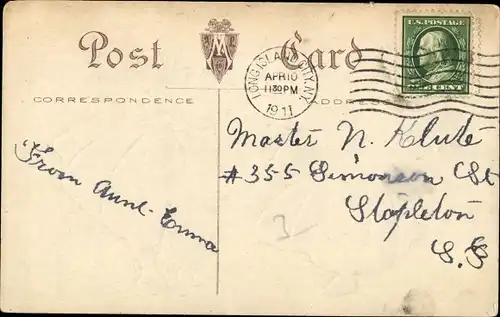 Post Card
CORRESPONDENCE
ADDRESS
M
LONG ISLAND CITY, N.Y.
APR 10
11 30 PM
1911
U.S. POSTAGE
ONE CENT
From Aunt Emma
Master N. Klute
#355 Simonson St
Stapleton
S. I.
3